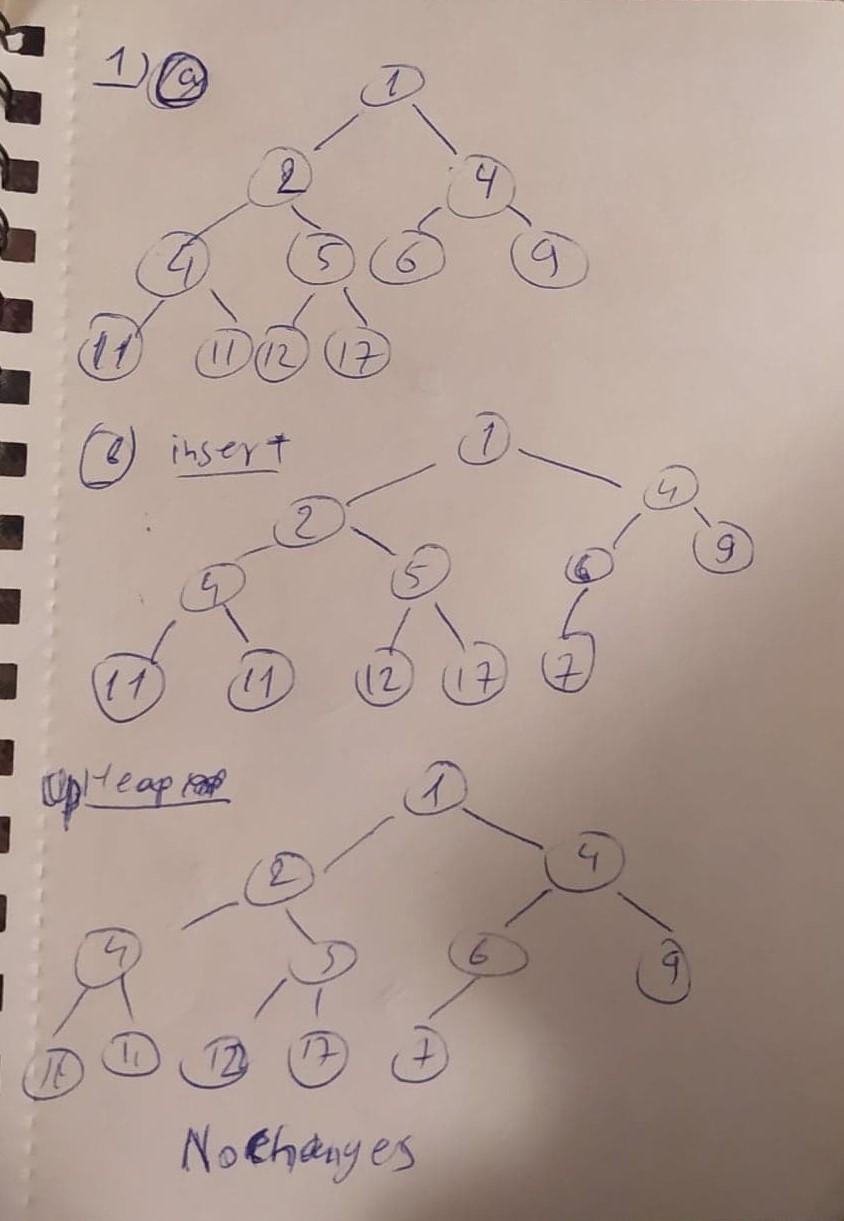 1) a
1
2 4
4 5 6 9
11 11 12 17
b insert
1
2 4
4 5 6 9
11 11 12 17 7
UpHeap
1
2 4
4 5 6 9
11 11 12 17 7
No changes